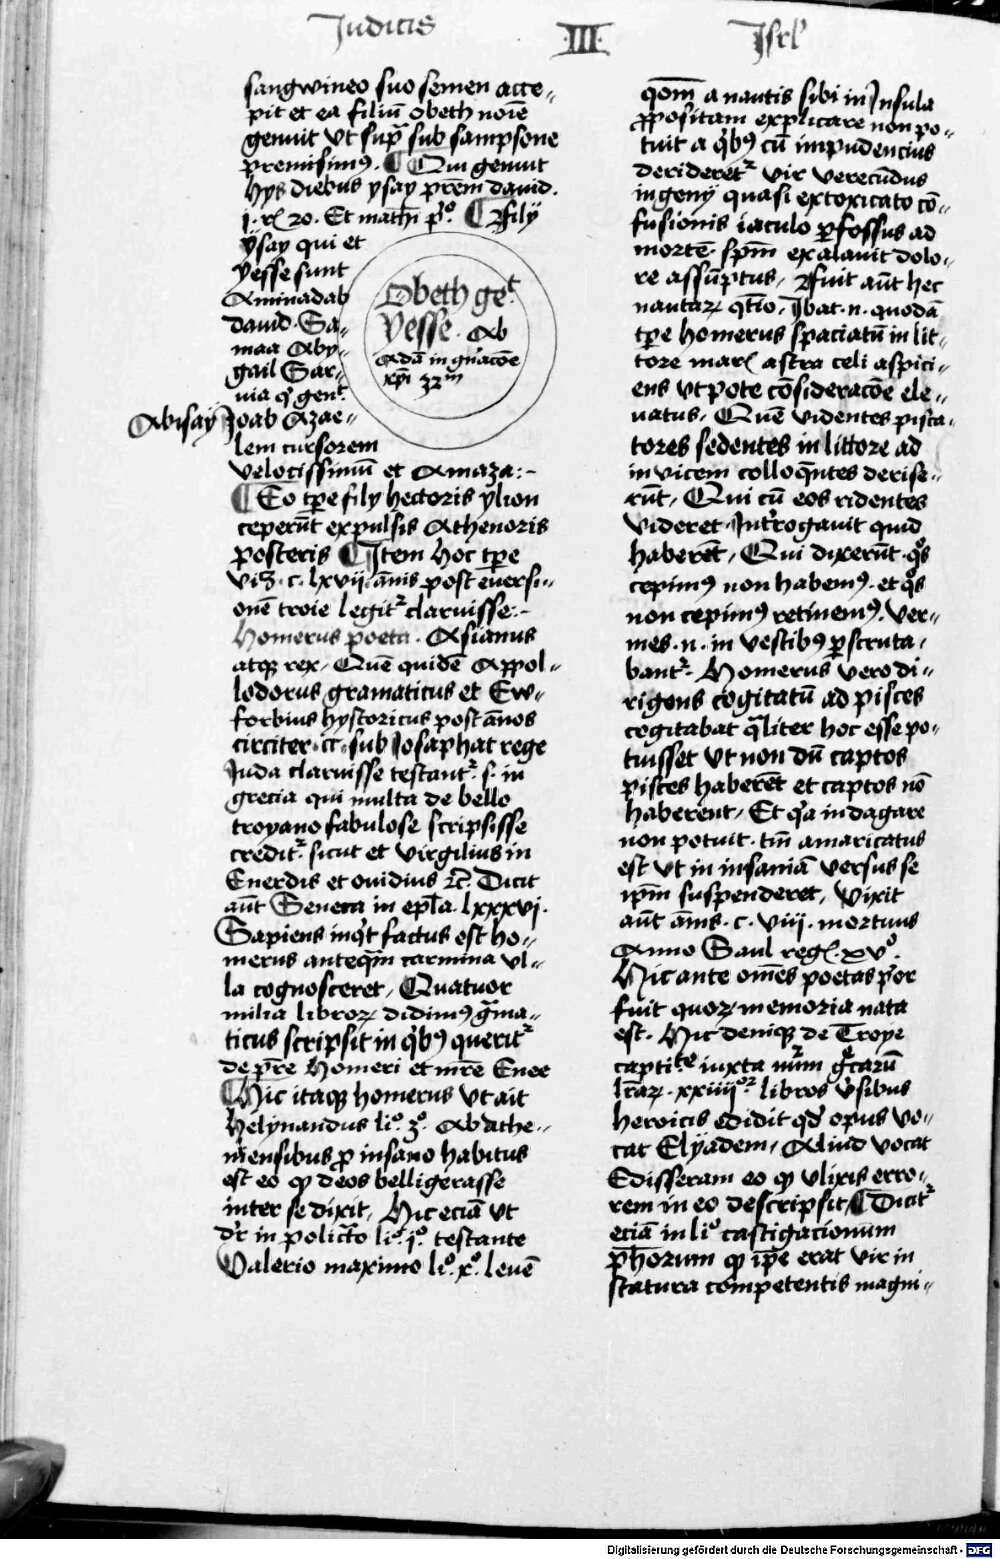 Judicis III Isrl'
sangwineo suo semen acce-
pit et ea filiū obeth noīe
genuit vt supͣ sub sampsone
premisimꝰ. ¶ Qui genuit
hys diebus ysay p̄rem dauid.
j. rͤ 20. Et math̄i pͦ. ¶ Filÿ
ysay qui et
yesse sunt
Aminadab
dauid. Sa-
maa Aby-
gail Sar-
uia q̄ genͭ.
Abisaÿ Joab Azae-
lem cursorem
velocissimū et Amaza:-
Obeth geͭ.
Yesse. Ab
Adā in gn̄acōe
xp̄i 32ᵐ
¶ Eo tp̄e fily hectoris ylion
ceperūt expulsis Athenoris
posteris ¶ Item hoc tp̄e
viꝫ. c. lxvii. ānis post euersi-
onē troie legitᷣ claruisse:-
Homerus poeta. Asianus
atqꝫ rex, Quē quidē Appol-
lodorus gramaticus et Ew-
forbius hystoricus post ānos
circiter. cc. sub Josaphat rege
Juda claruisse testantᷣ. s. in
grecia qui multa de bello
troyano fabulose scripsisse
creditᷣ. sicut et virgilius in
Enerdis et ouidius ⁊c̄. Dicit
aūt Seneca in epl̄a. lxxxvi.
Sapiens inqͭ factus est ho-
merus anteqͣm carmina vl-
la cognosceret, Quatuor
milia libroꝝ didimꝰ gͣma-
ticus scripsit in qͥbꝰ queritᷣ
de p̄re Homeri et mr̄e Enee
¶ Hic itaqꝫ homerus vt ait
Helynandus liͦ. 3ͦ. Ab athe-
niensibus ꝓ insano habitus
est eo ꝙ deos belligerasse
inter se dixit, Hic eciā vt
dr̄ in policͭo liͦ. jͦ. testante
Valerio maximo liͦ. xͦ. leuē
qōm a nautis sibi in Insula
ꝓpositam explicare non po-
tuit a qͥbꝰ cū impudencius
drideretᷣ vir verecūdus
ingenÿ quasi extoxicato cō-
fusionis iaculo ꝑfossus ad
mortē. sp̄m exalauit dolo-
re assūptus, Fuit aūt hec
nautaꝝ qͨtio, Ibat. n. quodā
tp̄e homerus spaciatū in lit-
tore marꝭ astra celi aspici-
ens vtpote cōsideracōe ele-
uatus, Quē videntes pisca-
tores sedentes in littore ad
invicem colloqn̄tes derise-
rūt, Qui cū eos ridentes
videret. Intͬrogauit quid
haberēt, Qui dixerūt. qͦs
cepimꝰ non habemꝰ. et qͦs
non cepimꝰ retinemꝰ. Ver-
mes. n. in vestibꝰ ꝑscruta-
bantᷣ. Homerus vero di-
rigens cogitatū ad pisces
cogitabat qͣliter hoc esse po-
tuisset vt non dū captos
pisces haberēt et captos nō
haberent, Et qͥa indagare
non potuit. tm̄ amaricatus
est vt in insaniā versus se
ip̄m suspenderet, Vixit
aūt ānis. c. viii. mortuus
Anno Saul regꝭ. xvͦ.
Hic ante om̄es poetas pͥor
fuit quoꝝ memoria nata
est. Hic deniqꝫ de Troye
captiͭᵉ iuxta nūᷣm gͤcarū
lr̄aꝝ. xxiiiiᵒʳ libros vͤsibus
heroicis edidit qd̄ opus vo-
cat Elyadem, Aliud vocat
Edisseram eo ꝙ vlixis erro-
rem in eo descripsit ¶ Dicitᷣ
eciā in liͦ castigacionum
ph̄orum ꝙ ip̄e erat vir in
statura competentis magni-
Digitalisierung gefördert durch die Deutsche Forschungsgemeinschaft - DFG